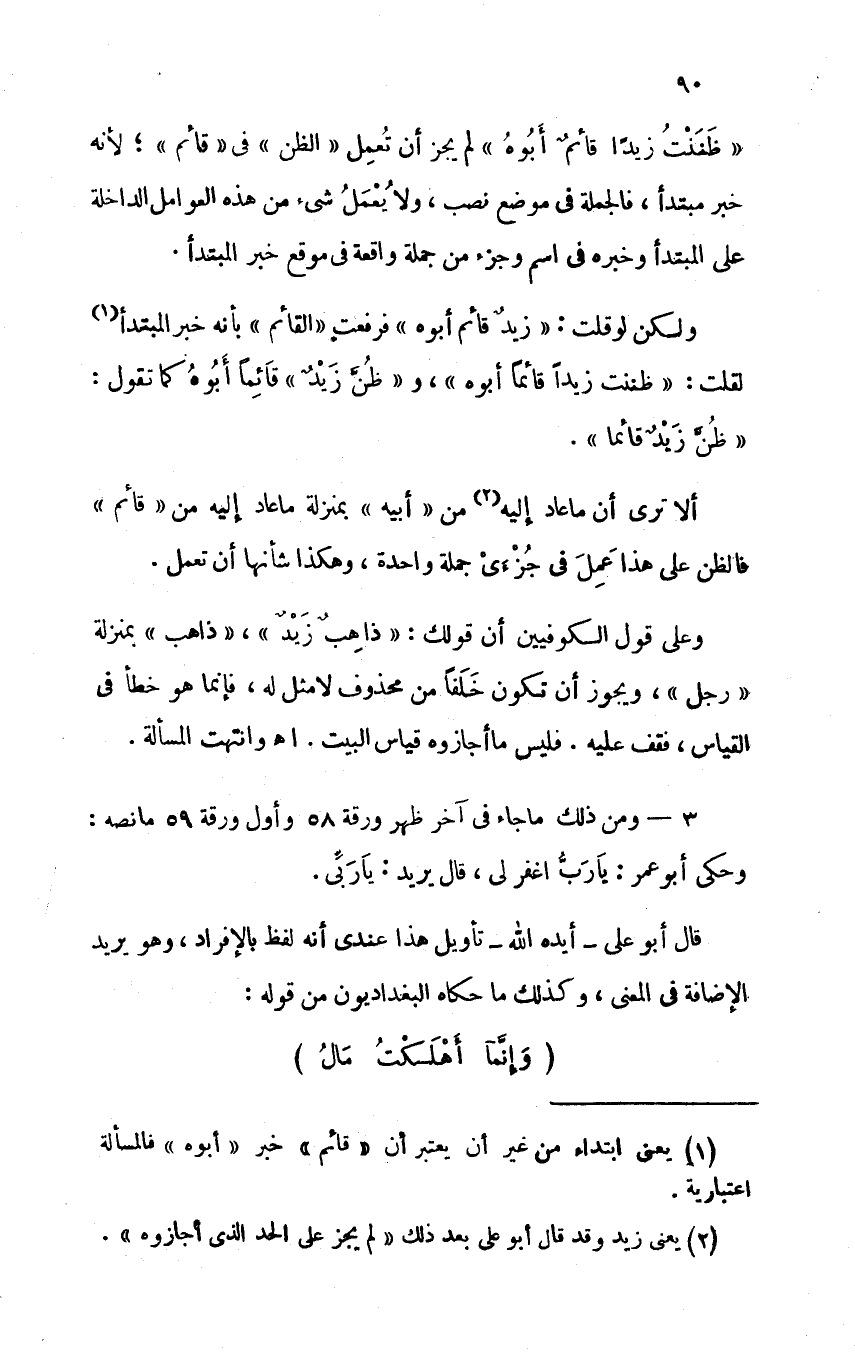 ٩٠
« ظَفَنْتُ زيدًا قائمٌ أَبُوهُ » لم يجز أن تُعمِل « الظن » فى « قائم » ؛ لأنه
خبر مبتدأ ، فالجملة فى موضع نصب ، ولا يُعْمَلُ شىء من هذه العوامل الداخلة
على المبتدأ وخبره فى اسم وجزء من جملة واقعة فى موقع خبر المبتدأ .
ولكن لو قلت : « زيدٌ قائم أبوه » فرفعت « القائم » بأنه خبر المبتدأ(١)
لقلت : « ظننت زيداً قائماً أبوه » ، و « ظُنَّ زَيْدٌ » قَائِماً أَبُوهُ كما تقول :
« ظُنَّ زَيْدٌ قائما » .
ألا ترى أن ماعاد إليه(٢) من « أبيه » بمنزلة ماعاد إليه من « قائم »
فالظن على هذا عَمِلَ فى جُزْءَىْ جملة واحدة ، وهكذا شأنها أن تعمل .
وعلى قول الكوفيين أن قولك : « ذاهِبٌ زَيْدٌ » ، « ذاهب » بمنزلة
« رجل » ، ويجوز أن تكون خَلَفاً من محذوف لامثل له ، فإنما هو خطأ فى
القياس ، فقف عليه . فليس ماأجازوه قياس البيت . اهـ وانتهت المسألة .
٣ — ومن ذلك ماجاء فى آخر ظهر ورقة ٥٨ وأول ورقة ٥٩ مانصه :
وحكى أبو عمر : يَارَبُّ اغفر لى ، قال يريد : يَارَبِّى .
قال أبو على ــ أيده الله ــ تأويل هذا عندى أنه لفظ بالإفراد ، وهو يريد
الإضافة فى المعنى ، وكذلك ما حكاه البغداديون من قوله :
( وَإِنَّمَا أَهْلَكْتُ مَالُ )
(١) يعنى ابتداء من غير أن يعتبر أن « قائم » خبر « أبوه » فالمسألة
اعتبارية .
(٢) يعنى زيد وقد قال أبو على بعد ذلك « لم يجز على الحد الذى أجازوه » .